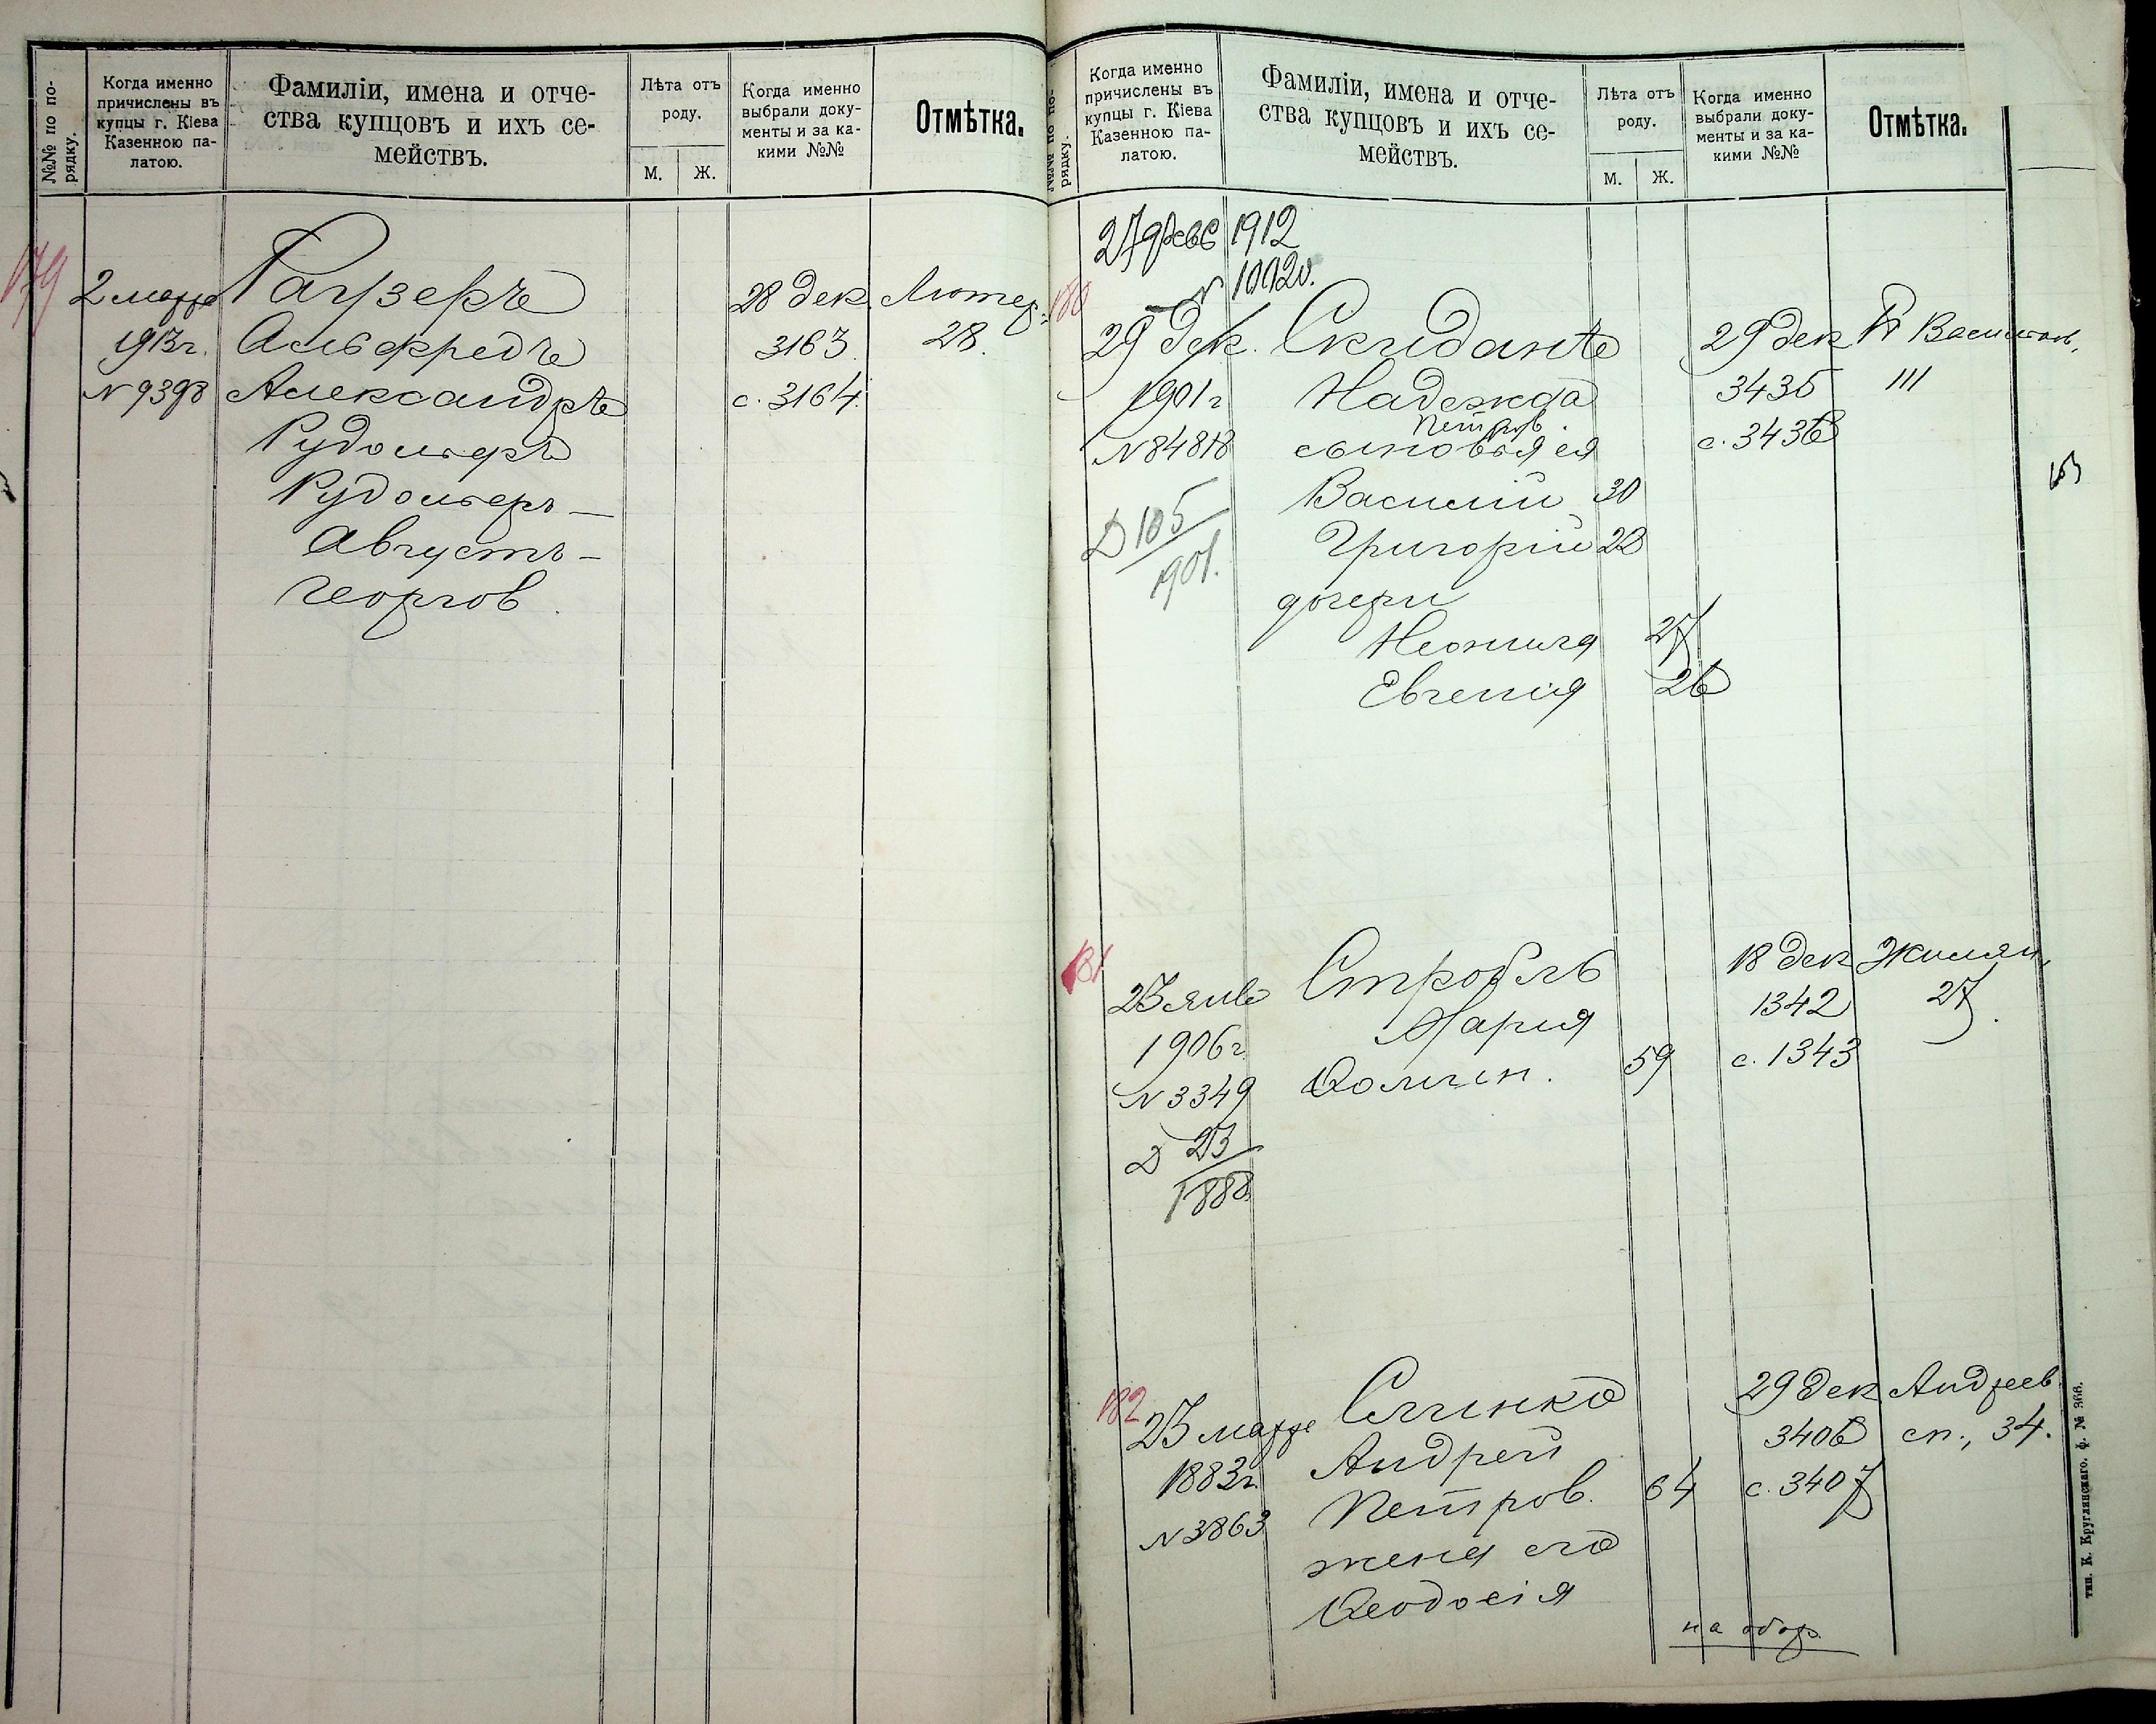 №№ по по-
рядку.
Когда именно
причислены въ
купцы г. Кіева
Казенною па-
латою.
Фамиліи, имена и отче-
ства купцовъ и ихъ се-
мействъ.
Лѣта отъ
роду.
М.
Ж.
Когда именно
выбрали доку-
менты и за ка-
кими №№
Отмѣтка.
179
2 марта
1913г.
№ 9398
Гаузеръ
Альфредъ
Александръ
Рудольфъ
Рудольфъ —
Августъ —
Георгов.
28 дек.
3163.
с. 3164.
Лютер.
28.
№№ по по-
рядку.
Когда именно
причислены въ
купцы г. Кіева
Казенною па-
латою.
Фамиліи, имена и отче-
ства купцовъ и ихъ се-
мействъ.
Лѣта отъ
роду.
М.
Ж.
Когда именно
выбрали доку-
менты и за ка-
кими №№
Отмѣтка.
27 фев 1912
№ 10020.
180
29 дек.
1901г
№ 84818
Д 105
1901.
Скиданъ
Надежда
Петров.
сыновья ея
Василий 30
Григорий 28
дочери
Неонила 27
Евгения 26
29 дек
3435
с. 3436
Б Васильк.
111
181
23 янв
1906г
№ 3349
Д 23
1888
Стробль
Мария
Ѳомин. 59
18 дек
1342
с. 1343
Жилян,
27.
182
23 марта
1883г.
№ 3863
Слинко
Андрей
Петров. 64
жена его
Ѳеодосія
29 дек
3406
с. 3407
Андреев
сп., 34.
на обор.
тип. К. Круглянскаго. ф. № 366.